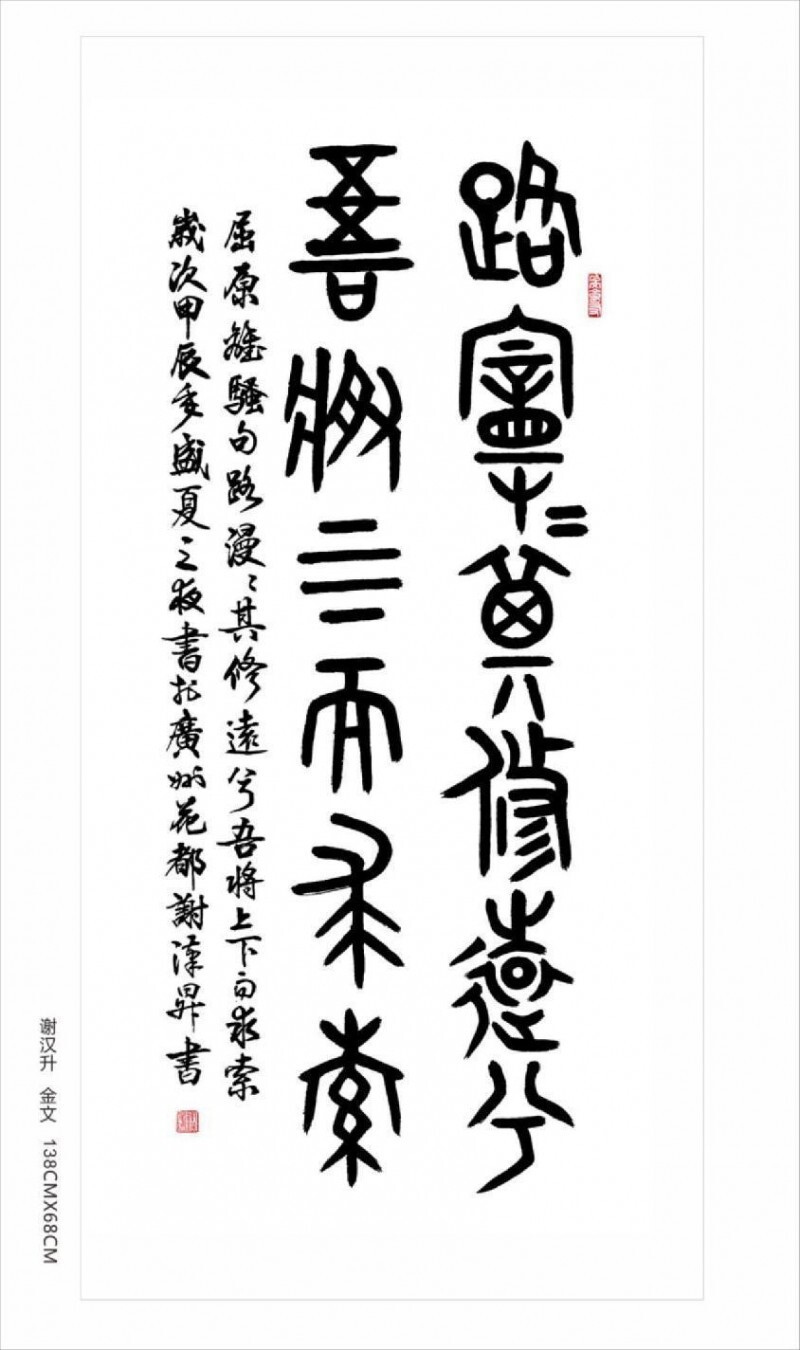 路寧〻其修遠兮
吾將上下而求索
屈原離騷句路漫〻其修遠兮吾將上下而求索
歲次甲辰年盛夏之夜書於廣州花都謝漢昇書
谢汉升 金文 138CMX68CM